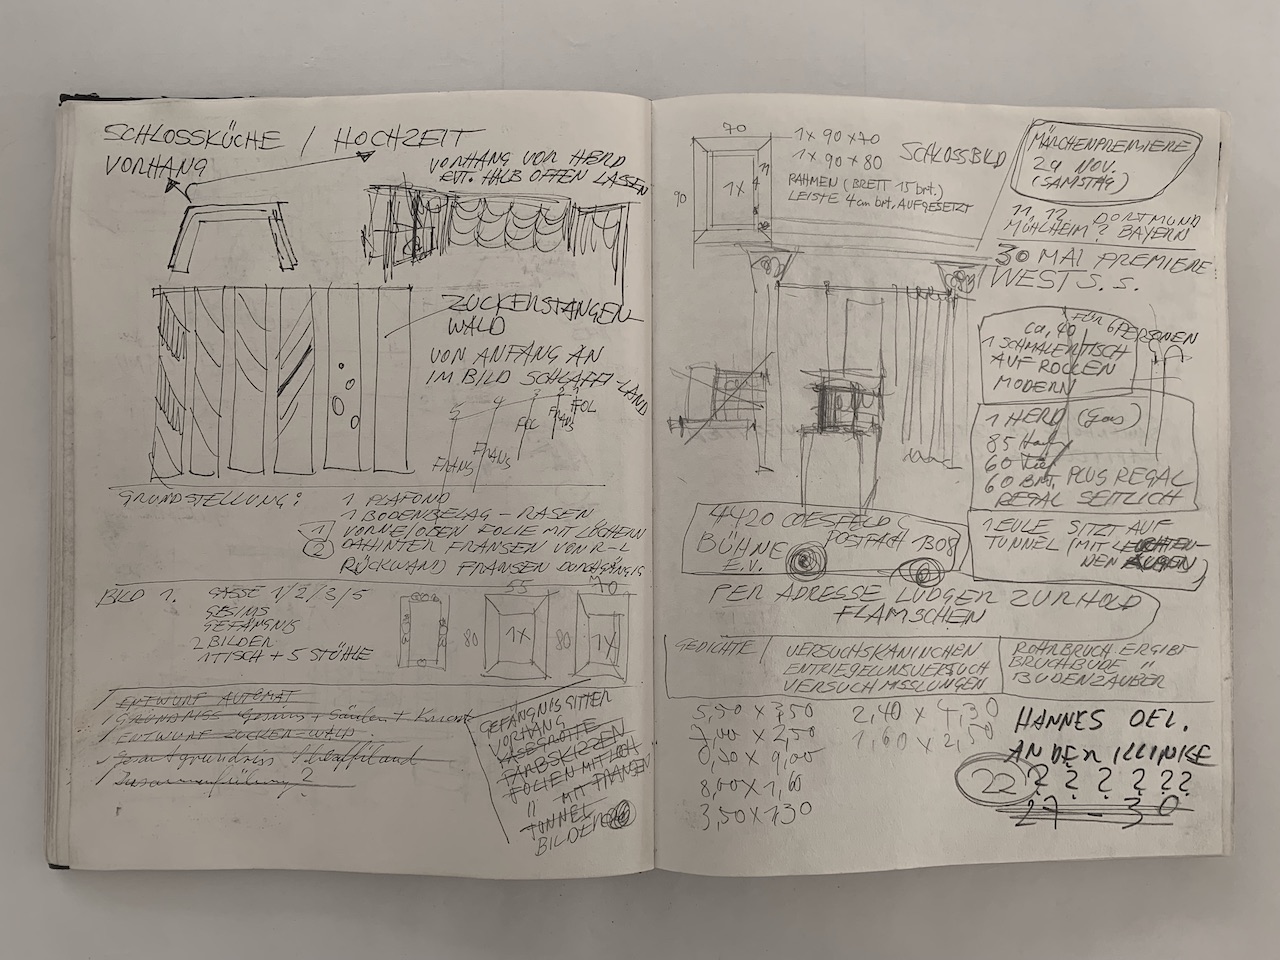 SCHLOSSKÜCHE / HOCHZEIT
VORHANG
VORHANG VOR HERD
EVT. HALB OFFEN LASSEN
ZUCKERSTANGEN
WALD
VON ANFANG AN
IM BILD SCHLAFFI-LAND
5 4 3 2 1
FOL
FRANS
FOL
FRANS
FRANS
GRUNDSTELLUNG:
1 PLAFOND
1 BODENBELAG - RASEN
1 VORNE/OBEN FOLIE MIT LÖCHERN
2 DAHINTER FRANSEN VON R-L
RÜCKWAND FRANSEN DURCHGÄNGIG
BILD 1.
GASSE 1/2/3/5
GESIMS
GEFÄNGNIS
2 BILDER
1 TISCH + 5 STÜHLE
80
55
1X
80
70
1X
ENTWURF AUTOMAT
GRUNDRISS Gesims + Säulen +
ENTWURF ZUCKER-WALD
Schlaffiland
Zusammenführung?
GEFÄNGNISGITTER
VORHANG
KÄSEGROTTE
FARBSKIZZEN
FOLIEN MIT LOCH
" MIT FRANSEN
TUNNEL
BILDER
70
90
1X
1X 90 X 70
1X 90 X 80
RAHMEN (BRETT 15 brt.)
LEISTE 4cm brt. AUFGESETZT
SCHLOSSBILD
MÄRCHENPREMIERE
29 NOV.
(SAMSTAG)
11, 12, DORTMUND
MÜHLHEIM? BAYERN
30 MAI PREMIERE
WEST S. S.
FÜR 6 PERSONEN
ca, 40
1 SCHMALER TISCH
AUF ROLLEN
MODERN
1 HERD (Gas)
85 Hoch
60 Tief
60 Brt, PLUS REGAL
REGAL SEITLICH
1 EULE SITZT AUF
TUNNEL (MIT LEUCHTEN-
DEN AUGEN)
4420 COESFELD
BÜHNE
E.V.
POSTFACH 1308
PER ADRESSE LUDGER ZURHOLD
FLAMSCHEN
GEDICHTE
VERSUCHSKANINCHEN
ENTRIEGELUNSVERSUCH
VERSUCH MISSLUNGEN
ROHRBRUCH ERGIBT
BRUCHBUDE "
BUDENZAUBER
5,50 X 3,50
7,00 X 2,50
9,00
8,00 X 1,60
3,50 X 7,30
2,40 X 4,30
1,60 X 2,50
HANNES OEL.
AN DER ILLINKE
22 ? ? ? ? ? ?
27 - 30